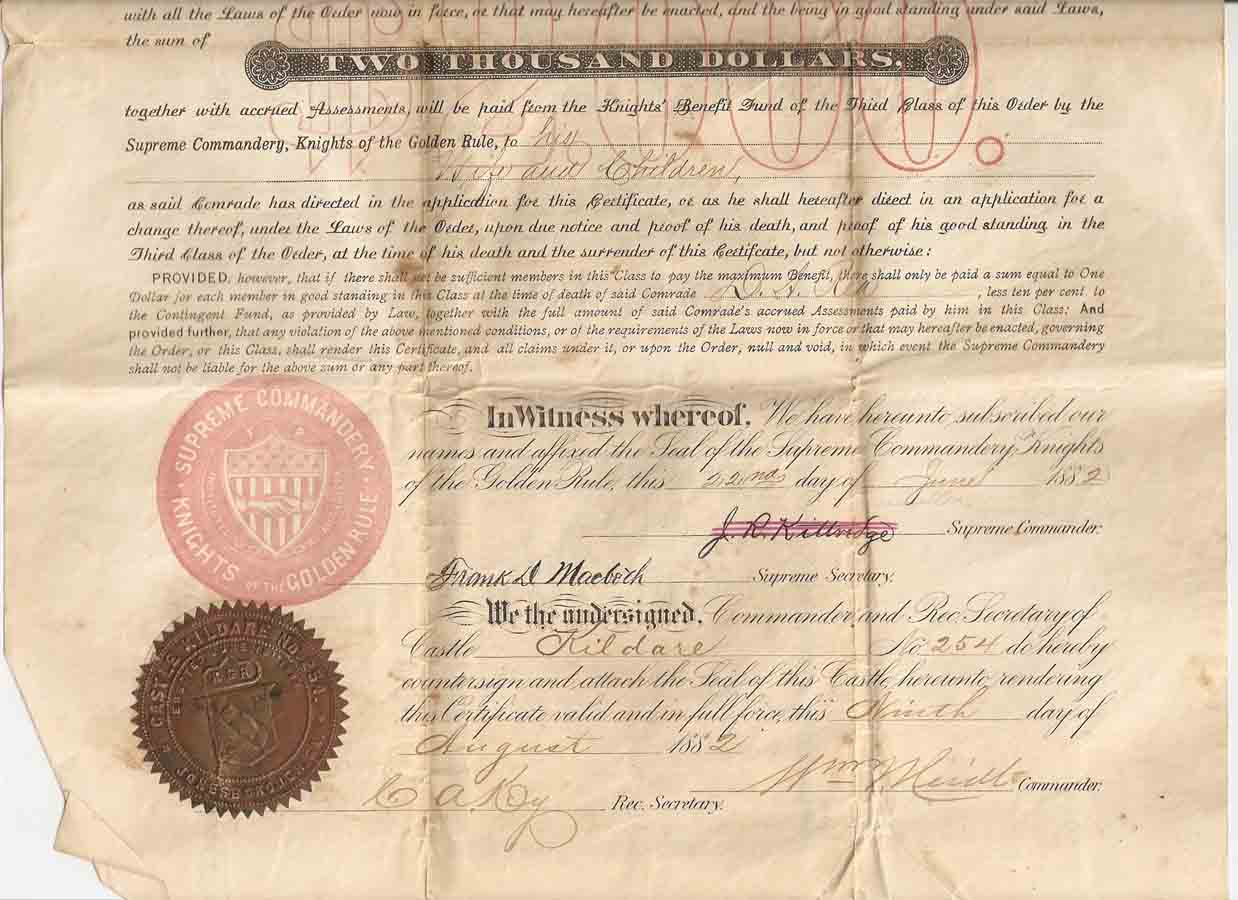 with all the Laws of the Order now in force, or that may hereafter be enacted, and the being in good standing under said Laws,
the sum of
$2,000.
TWO THOUSAND DOLLARS,
together with accrued Assessments, will be paid from the Knights' Benefit Fund of the Third Class of this Order by the
Supreme Commandery, Knights of the Golden Rule, to his
Wife and Children,
as said Comrade has directed in the application for this Certificate, or as he shall hereafter direct in an application for a
change thereof, under the Laws of the Order, upon due notice and proof of his death, and proof of his good standing in the
Third Class of the Order, at the time of his death and the surrender of this Certifcate, but not otherwise:
PROVIDED, however, that if there shall not be sufficient members in this Class to pay the maximum Benefit, there shall only be paid a sum equal to One
Dollar for each member in good standing in this Class at the time of death of said Comrade D. , less ten per cent. to
the Contingent Fund, as provided by Law, together with the full amount of said Comrade's accrued Assessments paid by him in this Class: And
provided further, that any violation of the above mentioned conditions, or of the requirements of the Laws now in force or that may hereafter be enacted, governing
the Order, or this Class, shall render this Certificate, and all claims under it, or upon the Order, null and void, in which event the Supreme Commandery
shall not be liable for the above sum or any part thereof.
SUPREME COMMANDERY
KNIGHTS OF THE GOLDEN RULE
In Witness whereof, We have hereunto subscribed our
names and affixed the Seal of the Supreme Commandery Knights
of the Golden Rule, this 22nd day of June 1882
J. R. Kittridge Supreme Commander.
Frank D Supreme Secretary.
We the undersigned, Commander and Rec. Secretary of
Castle Kildare No. 254 do hereby
countersign and attach the Seal of this Castle hereunto, rendering
this Certificate valid and in full force, this Ninth day of
August 1882
CASTLE KILDARE NO. 254.
K G R
Wm Commander.
C A Rec. Secretary.